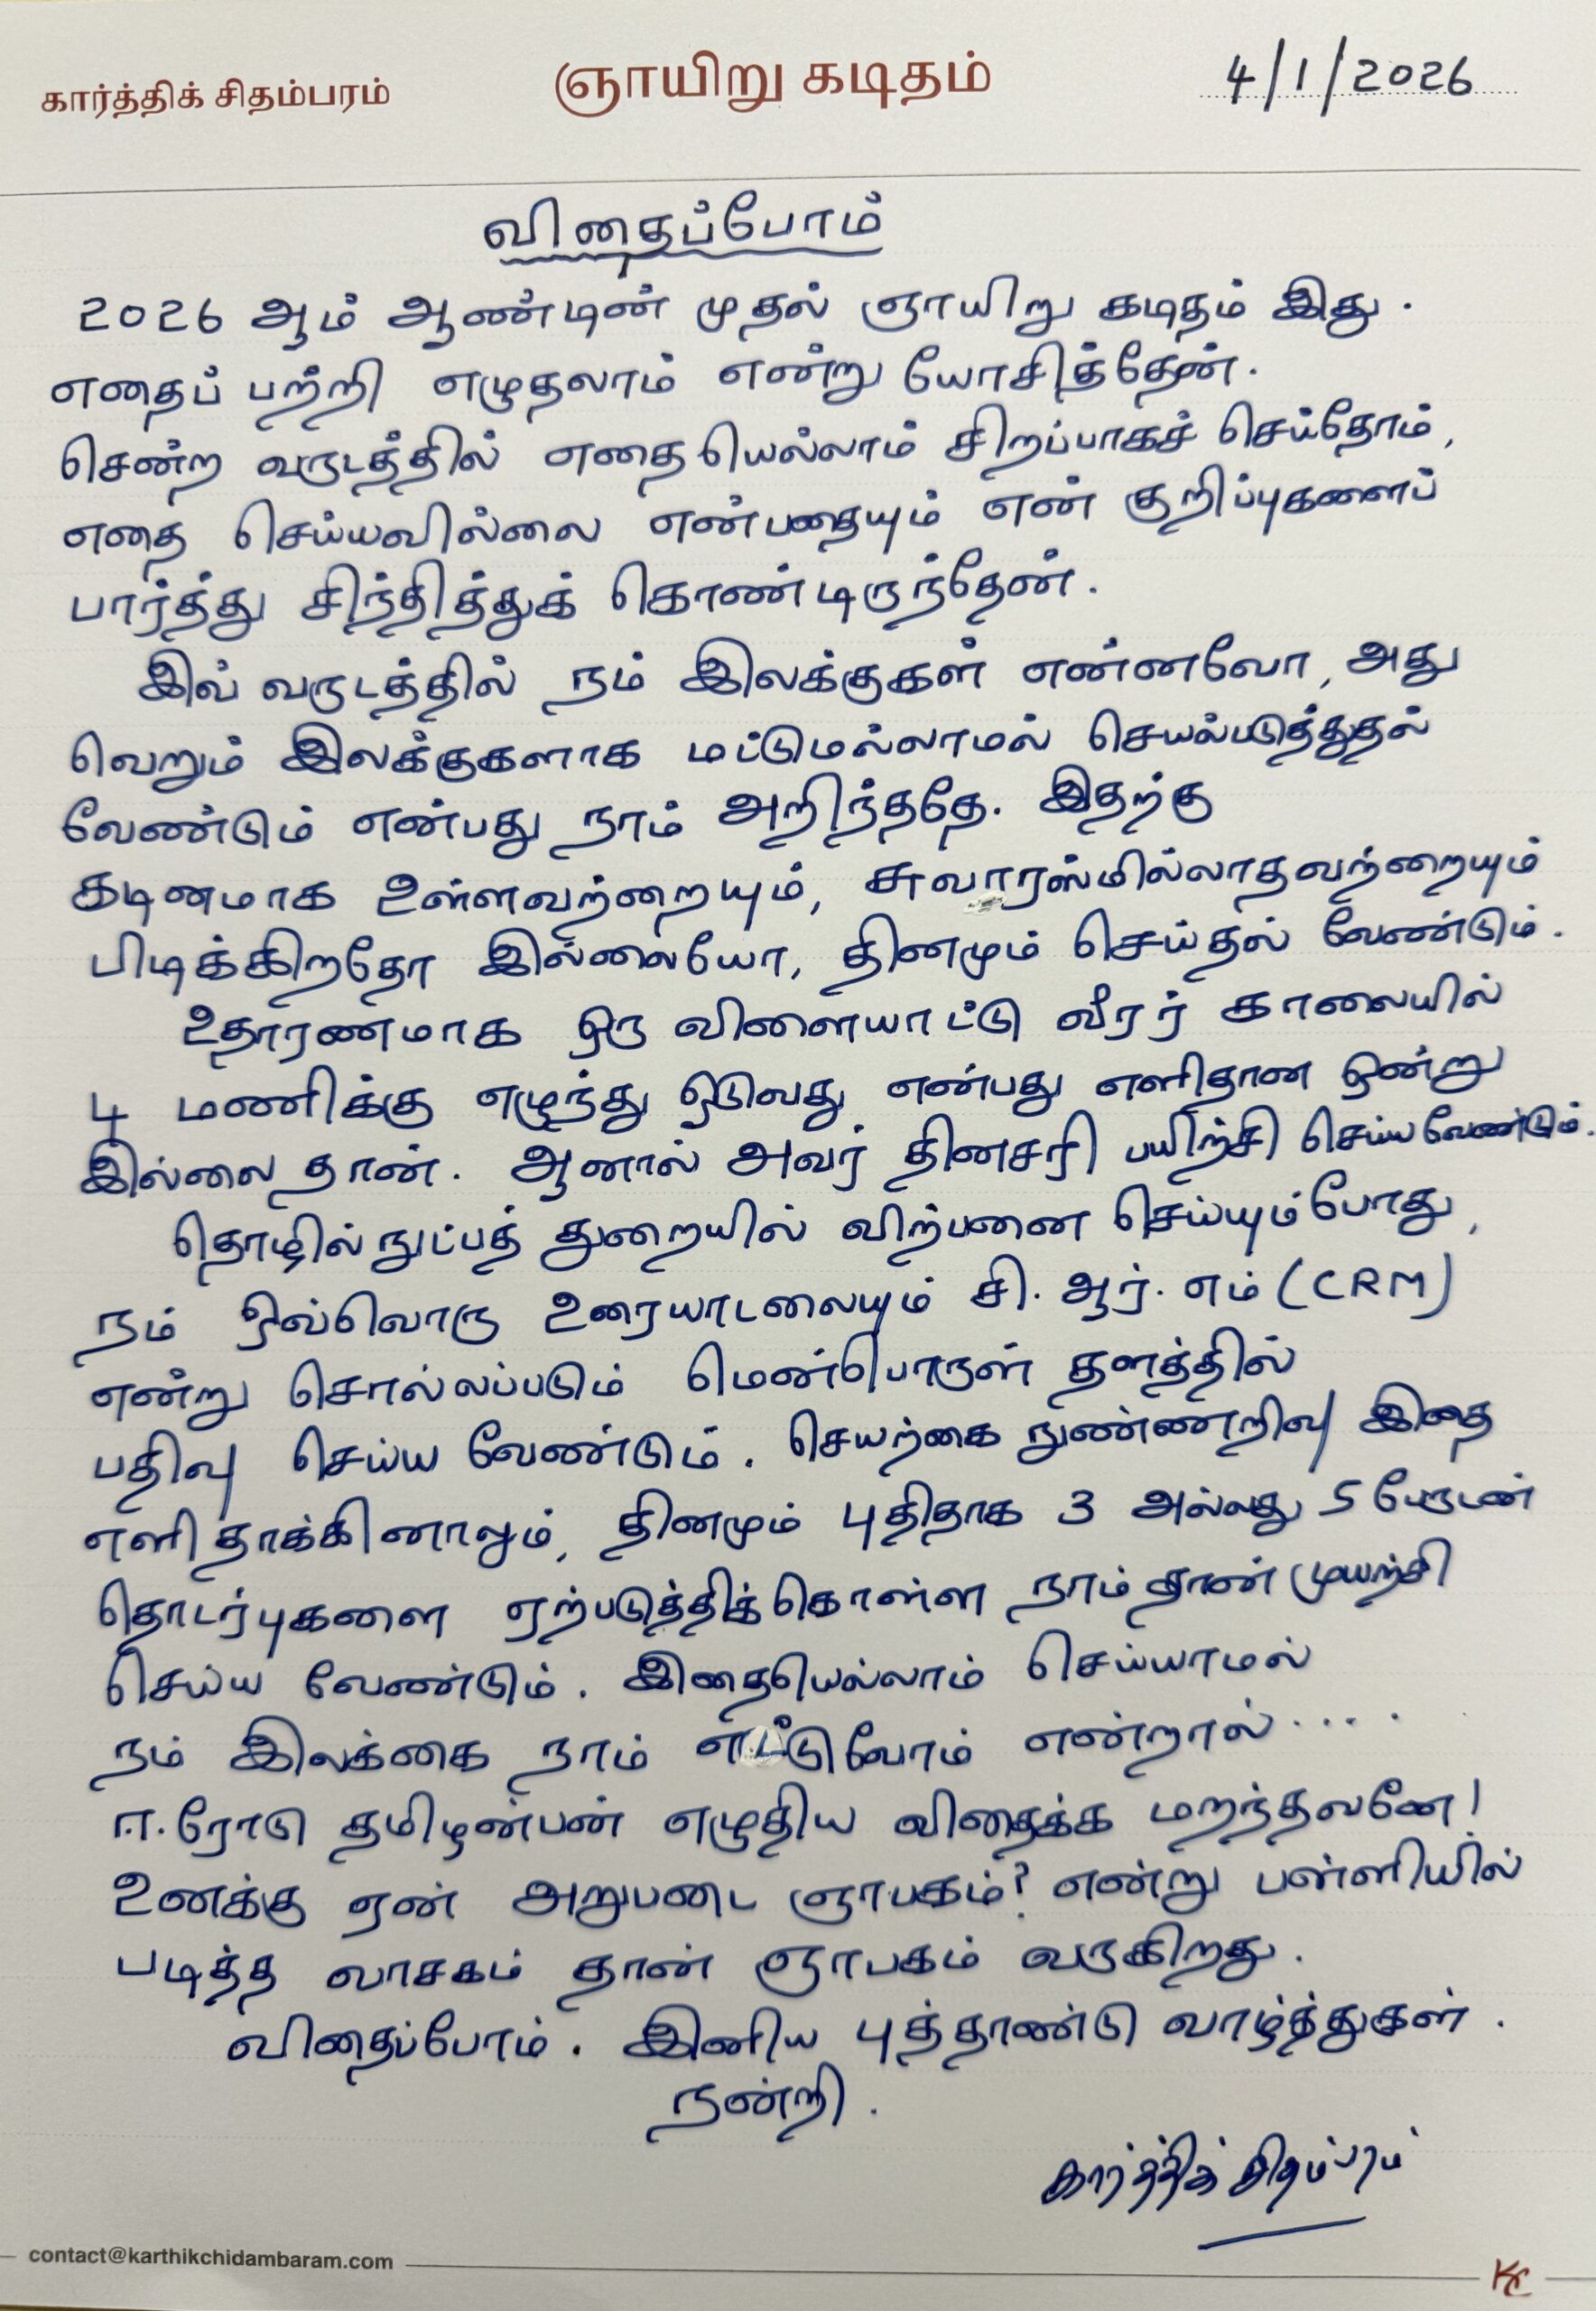 கார்த்திக் சிதம்பரம்
ஞாயிறு கடிதம்
4/1/2026
விதைப்போம்
2026 ஆம் ஆண்டின் முதல் ஞாயிறு கடிதம் இது.
எதைப் பற்றி எழுதலாம் என்று யோசித்தேன்.
சென்ற வருடத்தில் எதையெல்லாம் சிறப்பாகச் செய்தோம்,
எதை செய்யவில்லை என்பதையும் என் குறிப்புகளைப்
பார்த்து சிந்தித்துக் கொண்டிருந்தேன்.
இவ் வருடத்தில் நம் இலக்குகள் என்னவோ, அது
வெறும் இலக்குகளாக மட்டுமல்லாமல் செயல்படுத்துதல்
வேண்டும் என்பது நாம் அறிந்ததே. இதற்கு
கடினமாக உள்ளவற்றையும், சுவாரஸ்மில்லாதவற்றையும்
பிடிக்கிறதோ இல்லையோ, தினமும் செய்தல் வேண்டும்.
உதாரணமாக ஒரு விளையாட்டு வீரர் காலையில்
4 மணிக்கு எழுந்து ஓடுவது என்பது எளிதான ஒன்று
இல்லை தான். ஆனால் அவர் தினசரி பயிற்சி செய்ய வேண்டும்.
தொழில் நுட்பத் துறையில் விற்பனை செய்யும்போது,
நம் ஒவ்வொரு உரையாடலையும் சி. ஆர். எம் (CRM)
என்று சொல்லப்படும் மென்பொருள் தளத்தில்
பதிவு செய்ய வேண்டும். செயற்கை நுண்ணறிவு இதை
எளிதாக்கினாலும், தினமும் புதிதாக 3 அல்லது 5 பேருடன்
தொடர்புகளை ஏற்படுத்திக்கொள்ள நாம் தான் முயற்சி
செய்ய வேண்டும். இதையெல்லாம் செய்யாமல்
நம் இலக்கை நாம் எட்டுவோம் என்றால்.....
ஈ.ரோடு தமிழன்பன் எழுதிய விதைக்க மறந்தவனே!
உனக்கு ஏன் அறுபடை ஞாபகம்? என்று பள்ளியில்
படித்த வாசகம் தான் ஞாபகம் வருகிறது.
விதைப்போம். இனிய புத்தாண்டு வாழ்த்துகள்.
நன்றி.
கார்த்திக் சிதம்பரம்
contact@karthikchidambaram.com
KC